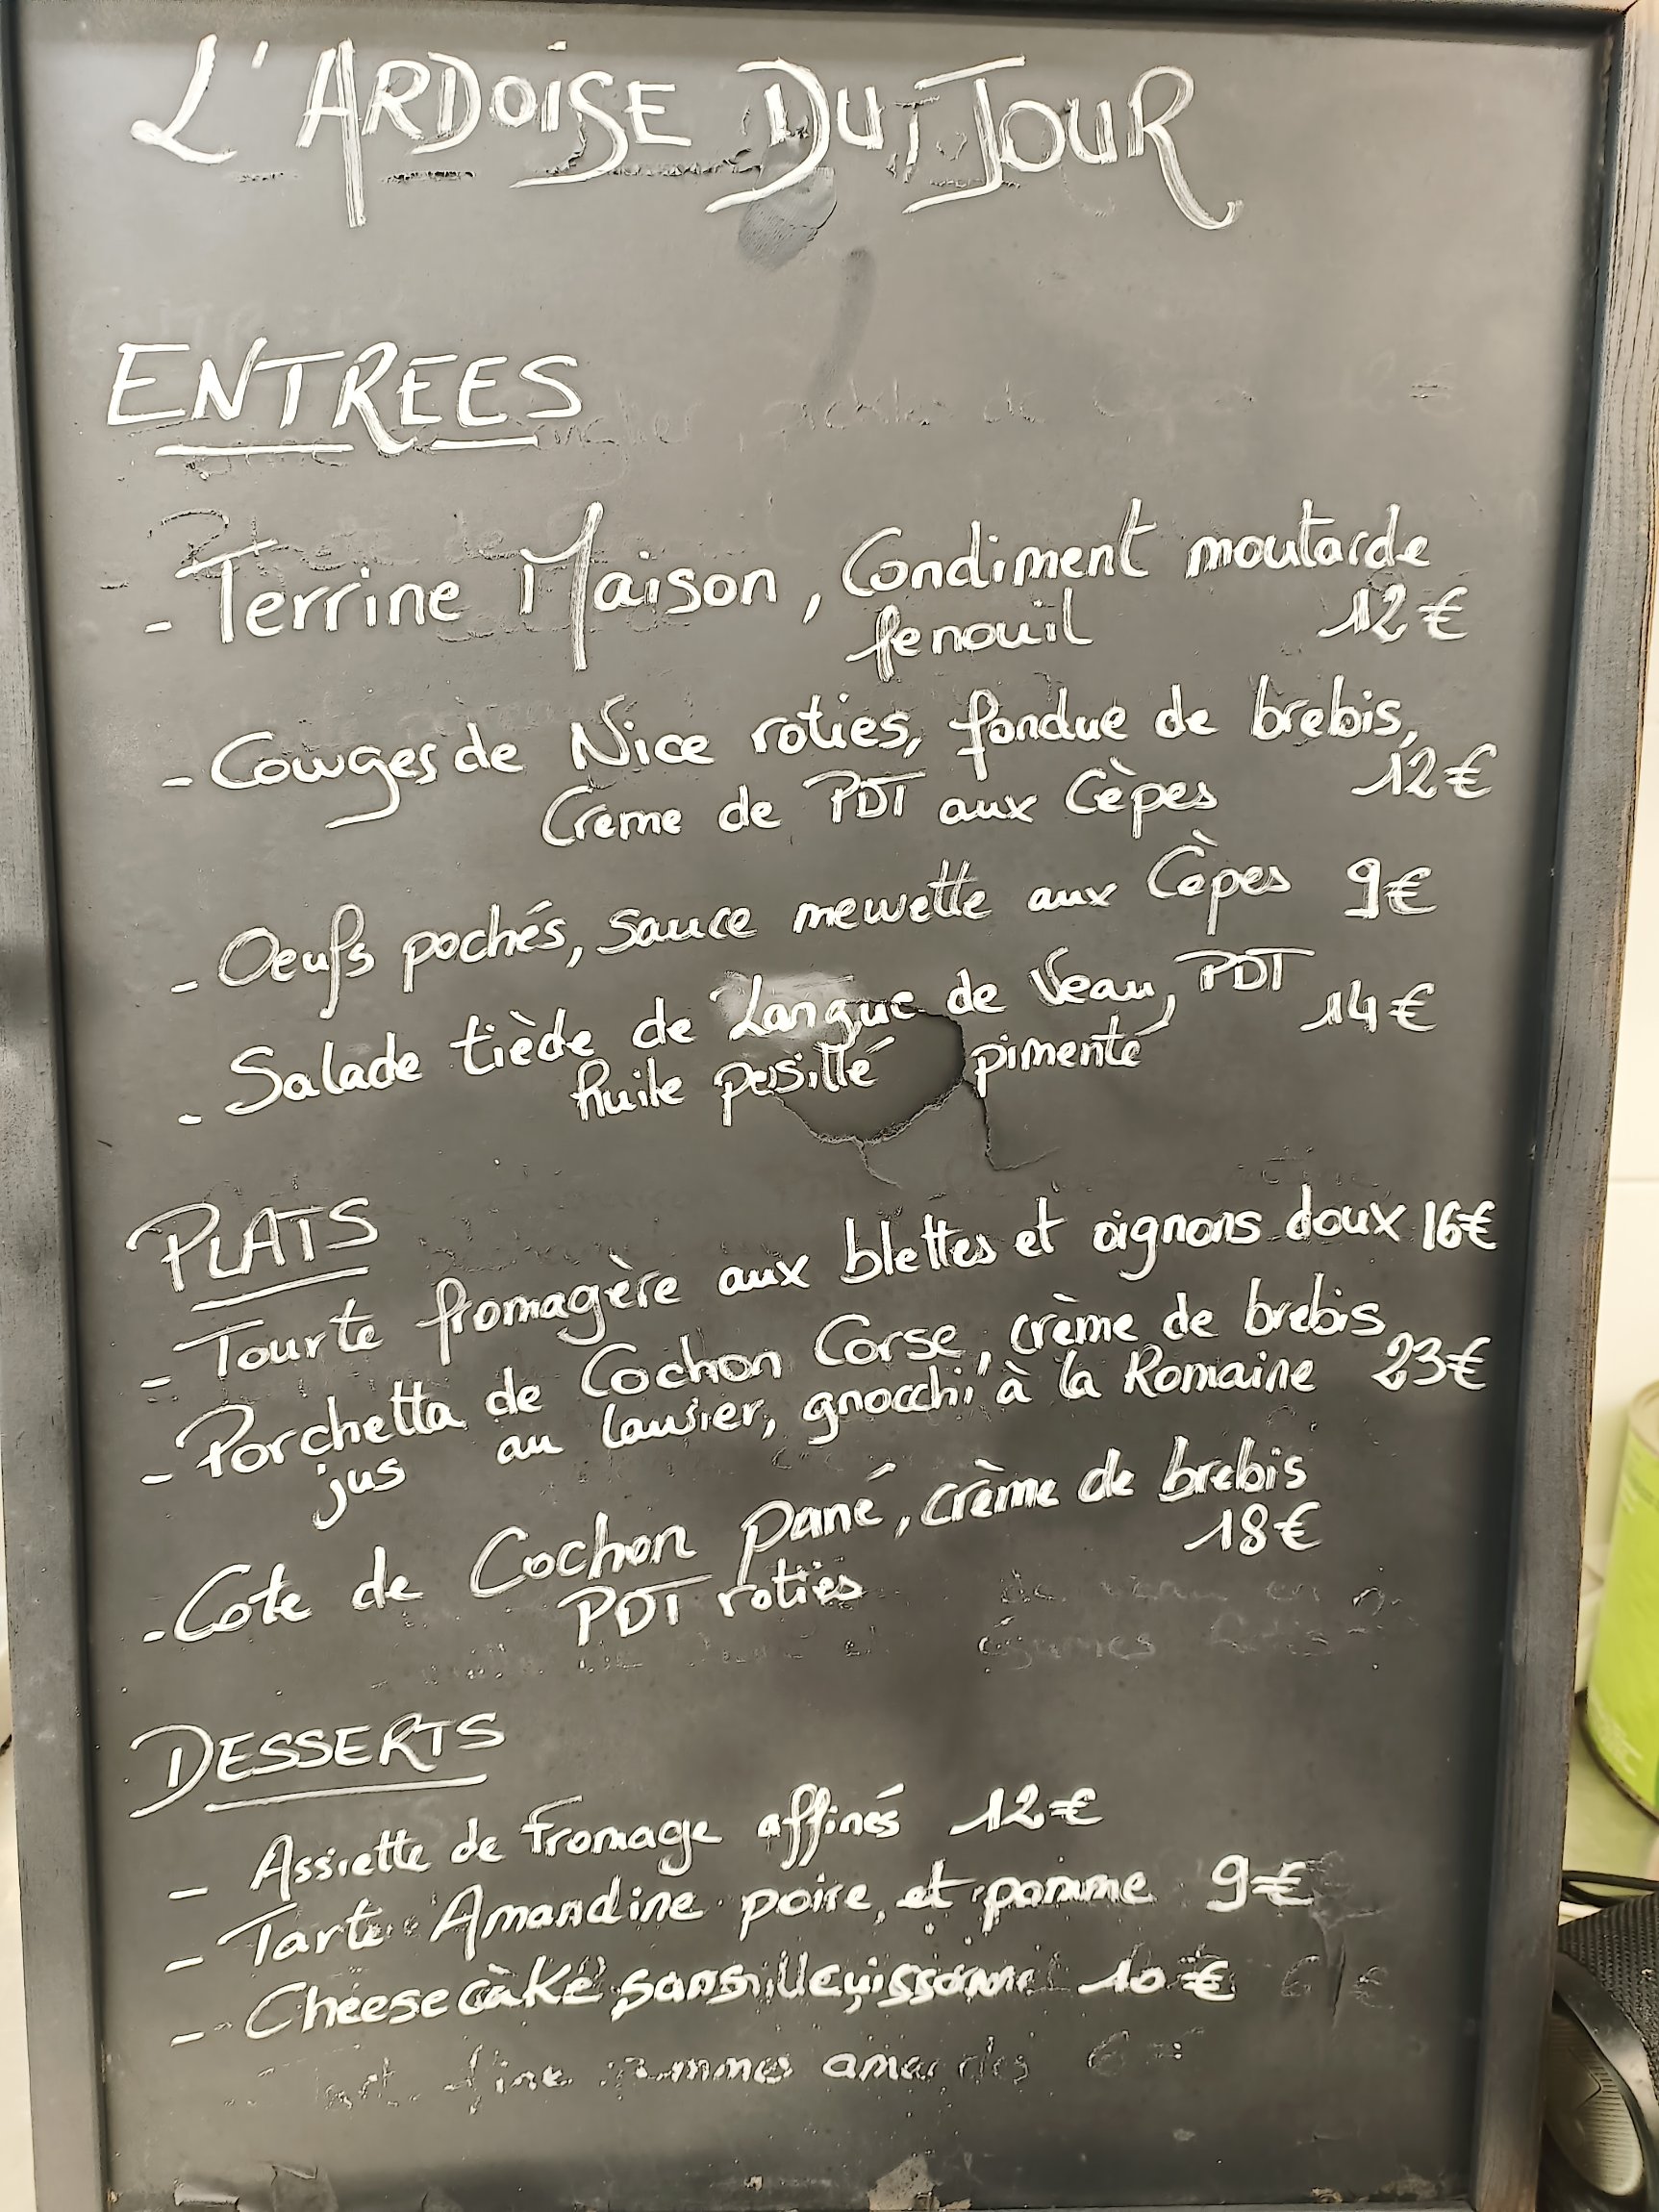 L'ARDOISE DU JOUR
ENTREES
- Terrine Maison, Condiment moutarde
fenouil 12€
- Courges de Nice roties, fondue de brebis,
Creme de PDT aux Cèpes 12€
- Oeufs pochés, sauce meurette aux Cèpes 9€
- Salade tiède de Langue de Veau, PDT
huile persillé pimenté 14€
PLATS
- Tourte fromagère aux blettes et oignons doux 16€
- Porchetta de Cochon Corse, crème de brebis,
jus au laurier, gnocchi à la Romaine 23€
- Cote de Cochon pané, crème de brebis
PDT roties 18€
DESSERTS
- Assiette de Fromage affinés 12€
- Tarte Amandine poire, et pomme 9€
- Cheesecake sans cuisson 10€
fine pommes